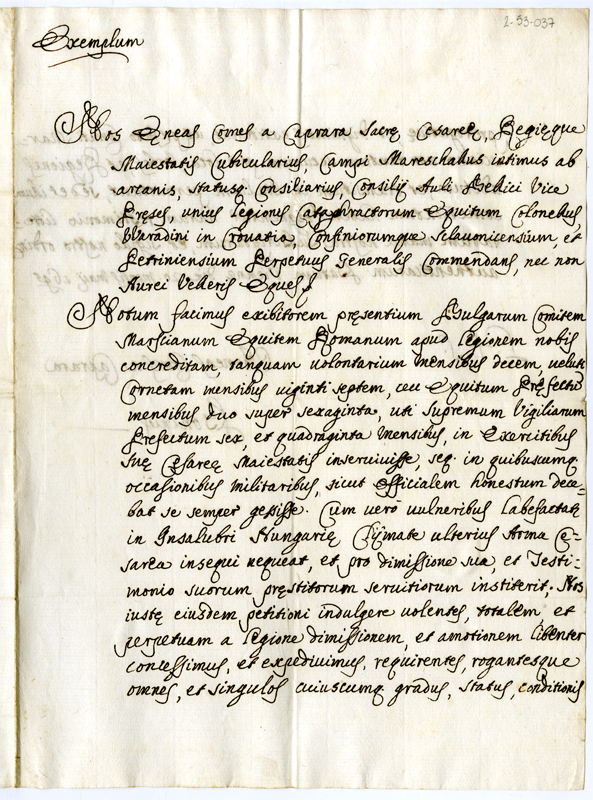 2-53-037
Exemplum
Nos Æneas Comes a Caprara Sacrę Cesareę, Regięque
Maiestatis Cubicularius, Campi Mareschallus intimus ab
arcanis, statusq. Consiliarius, Consilij Auli Bellici Vice
Pręses, unius legionis Cataphractorum Equitum Colonellus,
Waradini in Crouatia, Confiniorumque Sclauonicensium, et
Petriniensium Perpetuus Generalis Commendans, nec non
Aurei Velleris Eques
Notum facimus exibitorem pręsentium Bulgarum Comitem
Marscianum Equitem Romanum apud Legionem nobis
concreditam, tanquam uolontarium mensibus decem, ueluti
Cornetam mensibus uiginti septem, ceu Equitum Pręfectū
mensibus duo super sexaginta, uti Supremum Vigiliarum
Prefectum sex, et quadraginta mensibus, in Exercitibus
Suę Cesareę Maiestatis inseruiuisse, seq. in quibuscumq.
occasionibus militaribus, sicut Officialem honestum dece-
bat se semper gessisse. Cum uero uulneribus labefactatus
in Insalubri Hungarię Clijmate ulterius Arma Ce-
sarea insequi nequeat, et pro dimissione sua, et Testi-
monio suorum pręstitorum seruitiorum institerit. Nos
iustę eiusdem petitioni indulgere uolentes, totalem et
perpetuam a legione dimissionem, et amotionem libenter
concessimus, et expediuimus, requirentes, rogantesque
omnes, et singulos cuiuscumq. gradus, status, conditionis